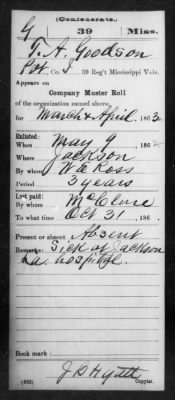 (Confederate.)
G 39 Miss.
T. A. Goodson
Pvt Co. I, 39 Reg't Mississippi Vols.
Appears on
Company Muster Roll
of the organization named above,
for March & April, 1863.
Enlisted:
When May 9, 1862
Where Jackson
By whom W E Ross
Period 3 years
Last paid:
By whom McClure
To what time Oct 31, 186 .
Present or absent Absent
Remarks: Sick at Jackson
La. hospital.
Book mark:
(642) J D Hyatt
Copyist.